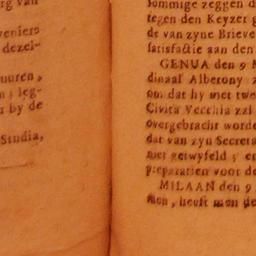 rg van
veniers
dezel-
uuren,
n; leg-
r by de
Studia,
sommige zeggen d
tegen den Keyzer g
de van zyne Brieve
satisfactie aan den
GENUA den 9 M
dinaal Alberony z
om dat hy met twe
Civita Vecchia zal
overgebracht worde
dat van zyn Secreta
niet getwyfeld; e
preparatien voor de
MILAAN den 9
men, heeft men de